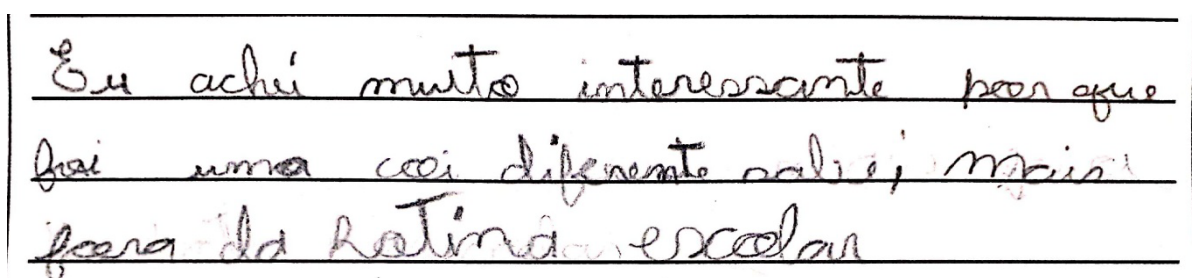 Eu achei muito interessante por que
foi uma coi diferente sabe, mais
fora da Rotina escolar